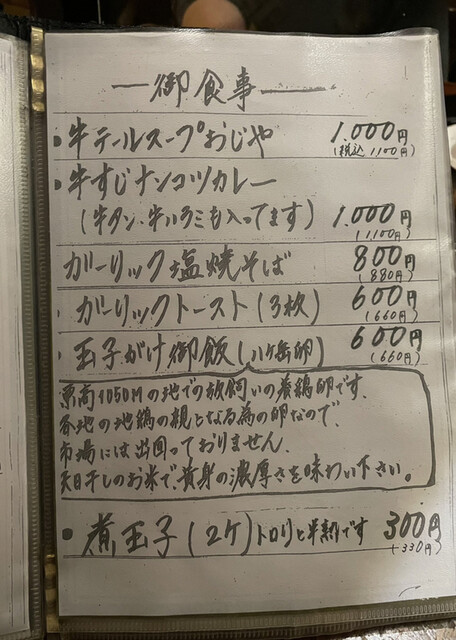 御食事
・牛テールスープおじや 1.000円
(税込 1100円)
・牛すじナンコツカレー
(牛タン・牛ハラミも入ってます) 1.000円
(1100円)
ガーリック塩焼そば 800円
(880円)
・ガーリックトースト(3枚) 600円
(660円)
・玉子がけ御飯(八ケ岳卵) 600円
(660円)
高1050Mの地での放飼いの養鶏卵です。
各地の地鶏の親となる為の卵なので、
市場には出回っておりません。
天日干しのお米で、黄身の濃厚さを味わい下さい。
・煮玉子(2ケ)トロリと半熟です 300円
(330円)